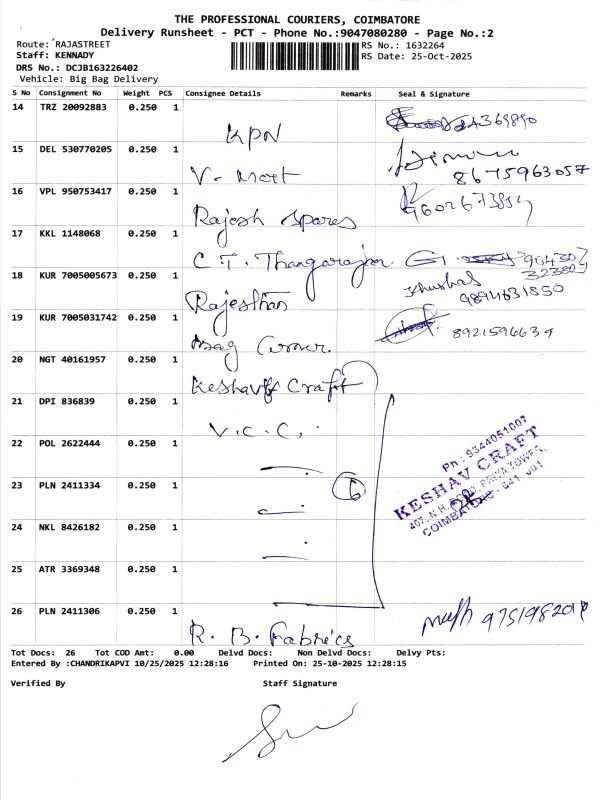 THE PROFESSIONAL COURIERS, COIMBATORE
Delivery Runsheet - PCT - Phone No.:9047080280 - Page No.:2
Route: RAJASTREET
Staff: KENNADY
DRS No.: DCJB163226402
Vehicle: Big Bag Delivery
RS No.: 1632264
RS Date: 25-Oct-2025
S No Consignment No Weight PCS Consignee Details Remarks Seal & Signature
14 TRZ 20092883 0.250 1
KPN
15 DEL 530770205 0.250 1
V-Mart 8675963057
16 VPL 950753417 0.250 1
Rajesh Spares
17 KKL 1148068 0.250 1
C.T. Thangarajan G. 90430
32380
18 KUR 7005005673 0.250 1
Rajesthan Khushal
9894631850
19 KUR 7005031742 0.250 1
Bag Corner. 8921596639
20 NGT 40161957 0.250 1
Keshav Craft
21 DPI 836839 0.250 1
V.C.C,
22 POL 2622444 0.250 1
23 PLN 2411334 0.250 1
6
24 NKL 8426182 0.250 1
Pn : 9344051007
KESHAV CRAFT
407, N.H. ROAD, PRIYA TOWER,
COIMBATORE - 641 001
25 ATR 3369348 0.250 1
26 PLN 2411306 0.250 1
R. B. Fabrics
Tot Docs: 26 Tot COD Amt: 0.00 Delvd Docs: Non Delvd Docs: Delvy Pts:
Entered By :CHANDRIKAPVI 10/25/2025 12:28:16 Printed On: 25-10-2025 12:28:15
Verified By Staff Signature